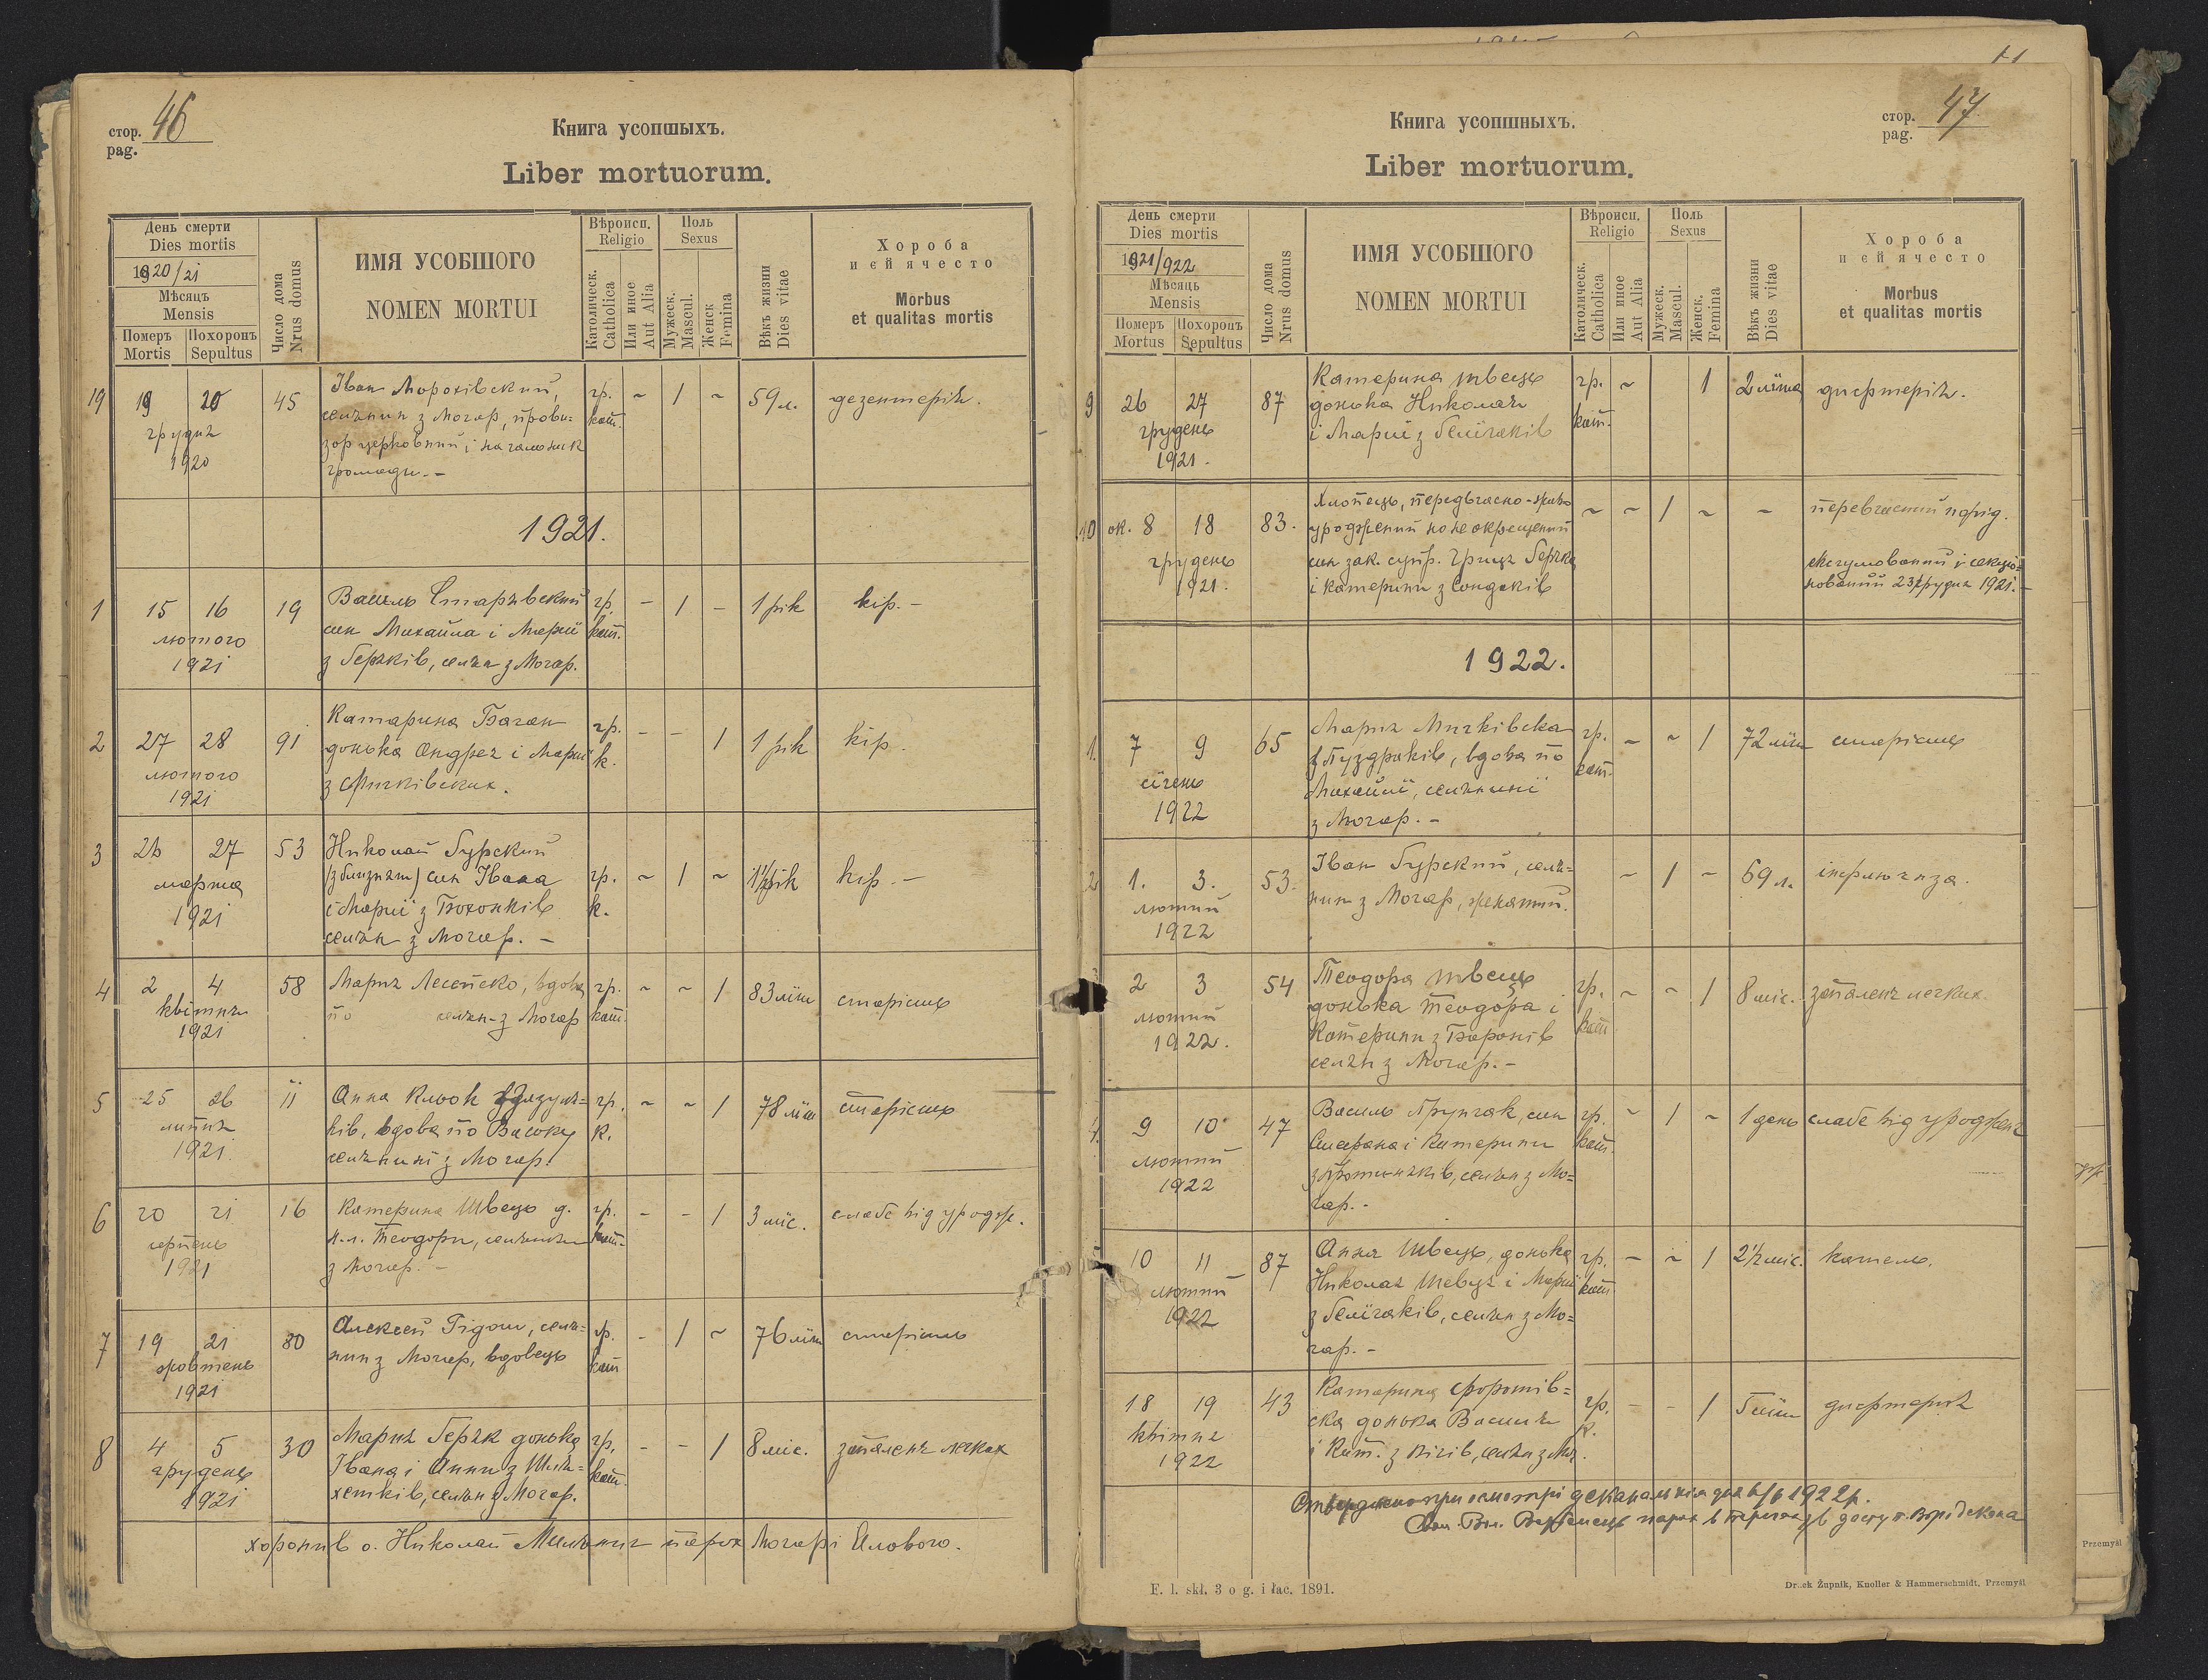 стор. 46
pag.
Книга усопшыхъ.
Liber mortuorum.
День смерти
Dies mortis
1920/21
Мѣсяцъ
Mensis
Померъ Похоронъ
Mortis Sepultus
Число дома
Nrus domus
ИМЯ УСОБШОГО
NOMEN MORTUI
Вѣроисп.
Religio
Католическ.
Catholica
Или иное
Aut Alia
Поль
Sexus
Мужеск.
Mascul.
Женск
Femina
Вѣкъ жизни
Dies vitae
Хороба
и єй ячесто
Morbus
et qualitas mortis
19 19 20 45 Іван Морохівский, гр. ~ 1 ~ 59 л. дезентерія.
грудня селянин з Мочар, прови= кат.
1920 зор церковний і начальник
громади. –
1921.
1 15 16 19 Василь гр. – 1 – 1 рік кір. –
лютого син Михайла і Марії кат.
1921 з Герчків, селян з Мочар.
2 27 28 91 Катарина Баган гр. – – 1 1 рік кір.
лютого донька Андрея і Марії к.
1921 з
3 26 27 53 Николай Гурский
марта (з близнят) син Івана гр. ~ 1 ~ 1½ рік кір. –
1921 і Марії з к.
селян з Мочар. –
4 2 4 58 Марія вдова гр. ~ ~ 1 83 літ старість
квітня по селян. з Мочар кат.
1921
5 25 26 11 Анна гр. ~ ~ 1 78 літ старість
липня ків, вдова по к.
1921. селянині з Мочар.
6 20 21 16 Катерина Швець д. гр. – – 1 3 міс. слабе від уродж.
серпень н. л. Теодори, селянки кат.
1921 з Мочар. –
7 19 21 80 Алексей Гідош, селя= гр. – 1 ~ 76 літ старість
жовтень нин з Мочар, вдовець кат
1921
8 4 5 30 Марія Герчк донька гр. – – 1 8 міс. запаленя легких
грудень Івана і Анни з кат.
1921 селян з Мочар.
хоронив о. Николай парох Мочар і Ялового.
стор. 47
pag.
Книга усопшныхъ.
Liber mortuorum.
День смерти
Dies mortis
1921/922
Мѣсяць
Mensis
Померъ Похоронъ
Mortus Sepultus
Число дома
Nrus domus
ИМЯ УСОБШОГО
NOMEN MORTUI
Вѣроисп.
Religio
Католическ.
Catholica
Или иное
Aut Alia
Поль
Sexus
Мужеск.
Mascul.
Женск.
Femina
Вѣкъ жизни
Dies vitae
Хороба
и єй ячесто
Morbus
et qualitas mortis
9 26 27 87 Катерина Швець гр. ~ 1 2 літа дифтерія.
грудень донька Николая кат.
1921. і Марії з Гелічаків
10 ок. 8 18 83. Хлопець, передчасно-живо ~ ~ 1 ~ – перевчасний пород.
грудень уроджений но не окрещений
1921. син зак. супр. Гриця Герчка ексгумований і секціо=
і Катерини з нований 23 грудня 1921. –
1922.
1. 7 9 65 Марія Мичківска гр. – ~ 1 72 літ старість
січень з Пуздраків, вдова по кат.
1922 Михайлі, селянині
з Мочар. –
2 1. 3. 53. Іван Гурский, селя= ~ 1 ~ 69 л. інфлюенза.
лютий нин з Мочар, жекатий.
1922
2 3 54 Теодора Швець гр. ~ ~ 1 8 міс. запаленя легких.
лютий донька Теодора і кат
1922. Катерини з Баронів
селян з Мочар. –
4. 9 10 47 Василь син гр. ~ 1 ~ 1 день слабе від уродженя
лютий Стефана і Катерини кат.
1922 селян з Мо=
чар. –
5 10 11 87 Анна Швець, донька гр. – ~ 1 2½ міс. кашель.
лютий Николая Шевця і Марії кат
1922 з Гелічаків, селян з Мо=
чар. –
18 19 43 Катарина гр. – – 1 5 літ дифтерія
квітня ска донька Василя к.
1922 і Кат. з селян з Моч.
Стверджено при осмотрі деканальнім дня 6/6 1922 р.
F. l. skł. 3 o g. i łac. 1891.
Druck Żupnik, Knoller & Hammerschmidt, Przemyśl
Przemyśl